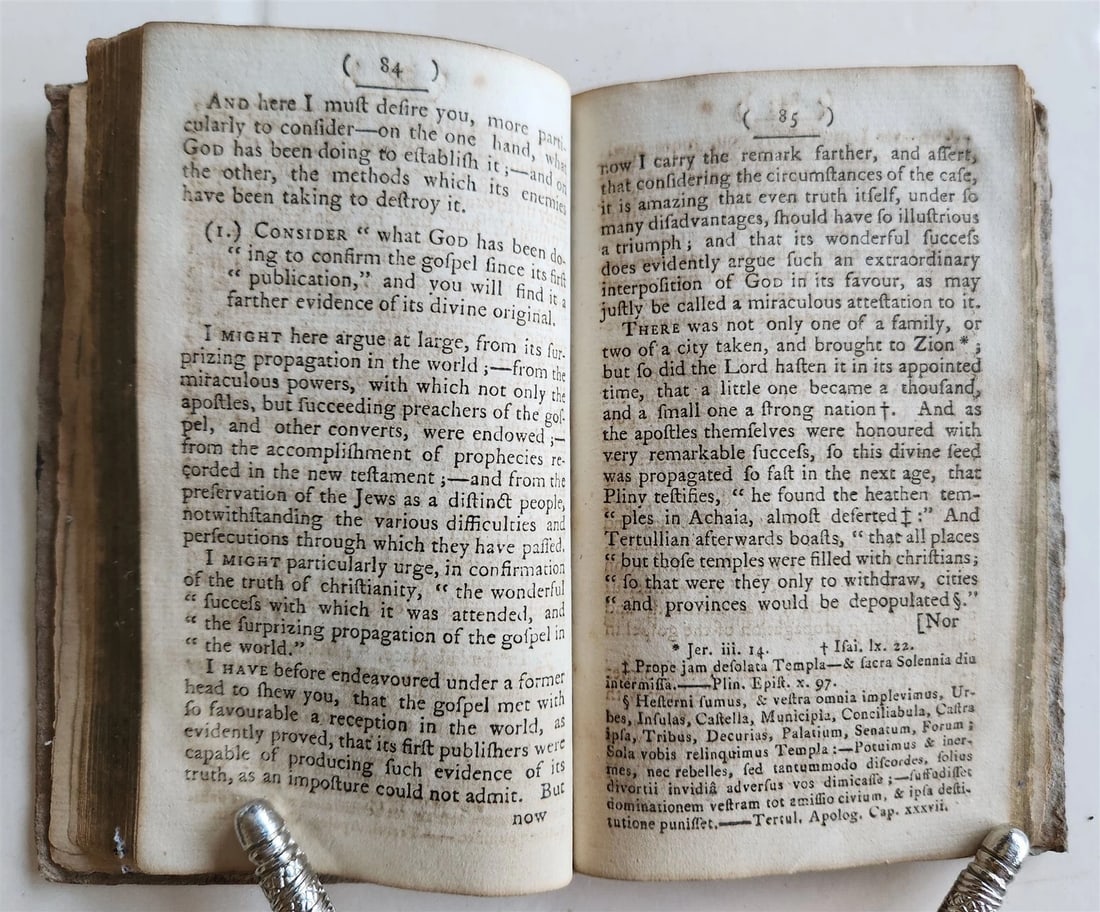 ( 84 )
AND here I muſt deſire you, more parti-
cularly to conſider—on the one hand, what
GOD has been doing to eſtabliſh it;—and on
the other, the methods which its enemies
have been taking to deſtroy it.
(1.) CONSIDER “ what GOD has been do-
“ ing to confirm the goſpel ſince its firſt
“ publication,” and you will find it a
farther evidence of its divine original.
I MIGHT here argue at large, from its ſur-
prizing propagation in the world;—from the
miraculous powers, with which not only the
apoſtles, but ſucceeding preachers of the goſ-
pel, and other converts, were endowed;—
from the accompliſhment of prophecies re-
corded in the new teſtament;—and from the
preſervation of the Jews as a diſtinct people,
notwithſtanding the various difficulties and
perſecutions through which they have paſſed.
I MIGHT particularly urge, in confirmation
of the truth of chriſtianity, “ the wonderful
“ ſucceſs with which it was attended, and
“ the ſurprizing propagation of the goſpel in
“ the world.”
I HAVE before endeavoured under a former
head to ſhew you, that the goſpel met with
ſo favourable a reception in the world, as
evidently proved, that its firſt publiſhers were
capable of producing ſuch evidence of its
truth, as an impoſture could not admit. But
now
( 85 )
now I carry the remark farther, and aſſert,
that conſidering the circumſtances of the caſe,
it is amazing that even truth itſelf, under ſo
many diſadvantages, ſhould have ſo illuſtrious
a triumph; and that its wonderful ſucceſs
does evidently argue ſuch an extraordinary
interpoſition of GOD in its favour, as may
juſtly be called a miraculous atteſtation to it.
THERE was not only one of a family, or
two of a city taken, and brought to Zion *;
but ſo did the Lord haſten it in its appointed
time, that a little one became a thouſand,
and a ſmall one a ſtrong nation†. And as
the apoſtles themſelves were honoured with
very remarkable ſucceſs, ſo this divine ſeed
was propagated ſo faſt in the next age, that
Pliny teſtifies, “ he found the heathen tem-
“ ples in Achaia, almoſt deſerted‡:” And
Tertullian afterwards boaſts, “ that all places
“ but thoſe temples were filled with chriſtians;
“ ſo that were they only to withdraw, cities
“ and provinces would be depopulated§.”
[Nor
* Jer. iii. 14. † Iſai. lx. 22.
‡ Prope jam deſolata Templa—& ſacra Solennia diu
intermiſſa.——Plin. Epiſt. x. 97.
§ Heſterni ſumus, & veſtra omnia implevimus, Ur-
bes, Inſulas, Caſtella, Municipia, Conciliabula, Caſtra
ipſa, Tribus, Decurias, Palatium, Senatum, Forum;
Sola vobis relinquimus Templa:—Potuimus & iner-
mes, nec rebelles, ſed tantummodo diſcordes, ſolius
divortii invidiâ adverſus vos dimicaſſe;—ſuffudiſſet
dominationem veſtram tot amiſſio civium, & ipſa deſti-
tutione puniſſet.——Tertul. Apolog. Cap. xxxvii.